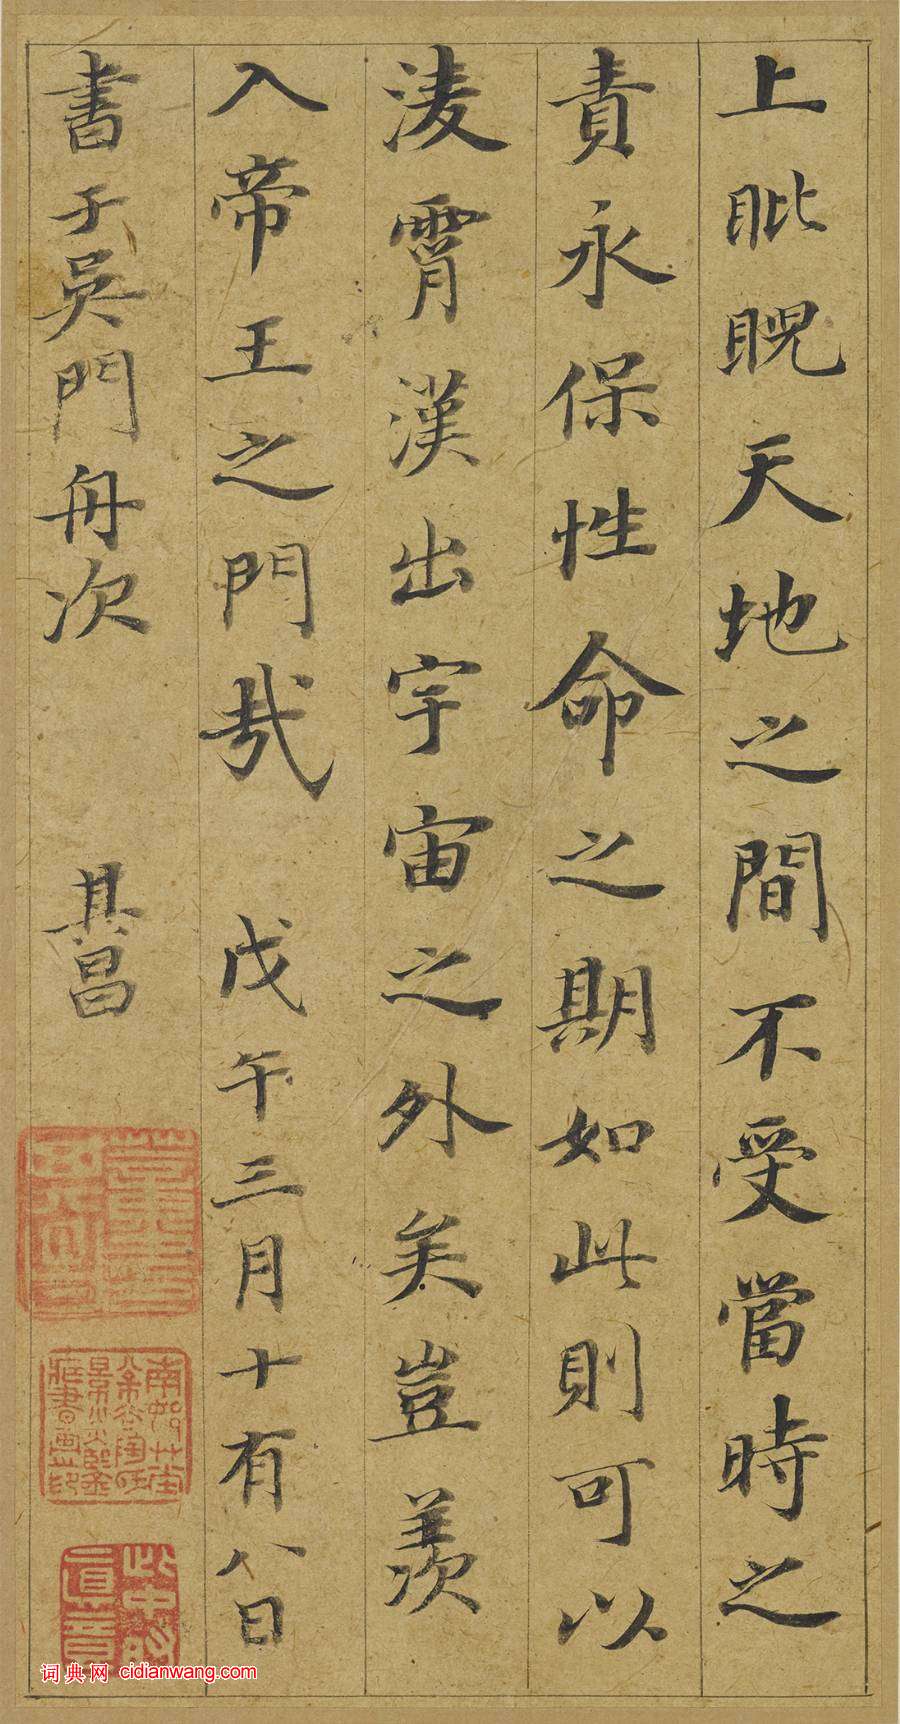 上睥睨天地之間不受當時之
責永保性命之期如此則可以
淩霄漢出宇宙之外矣豈羨
入帝王之門哉 戊午三月十有八日
書于吳門舟次 其昌
词典网 cidianwang.com